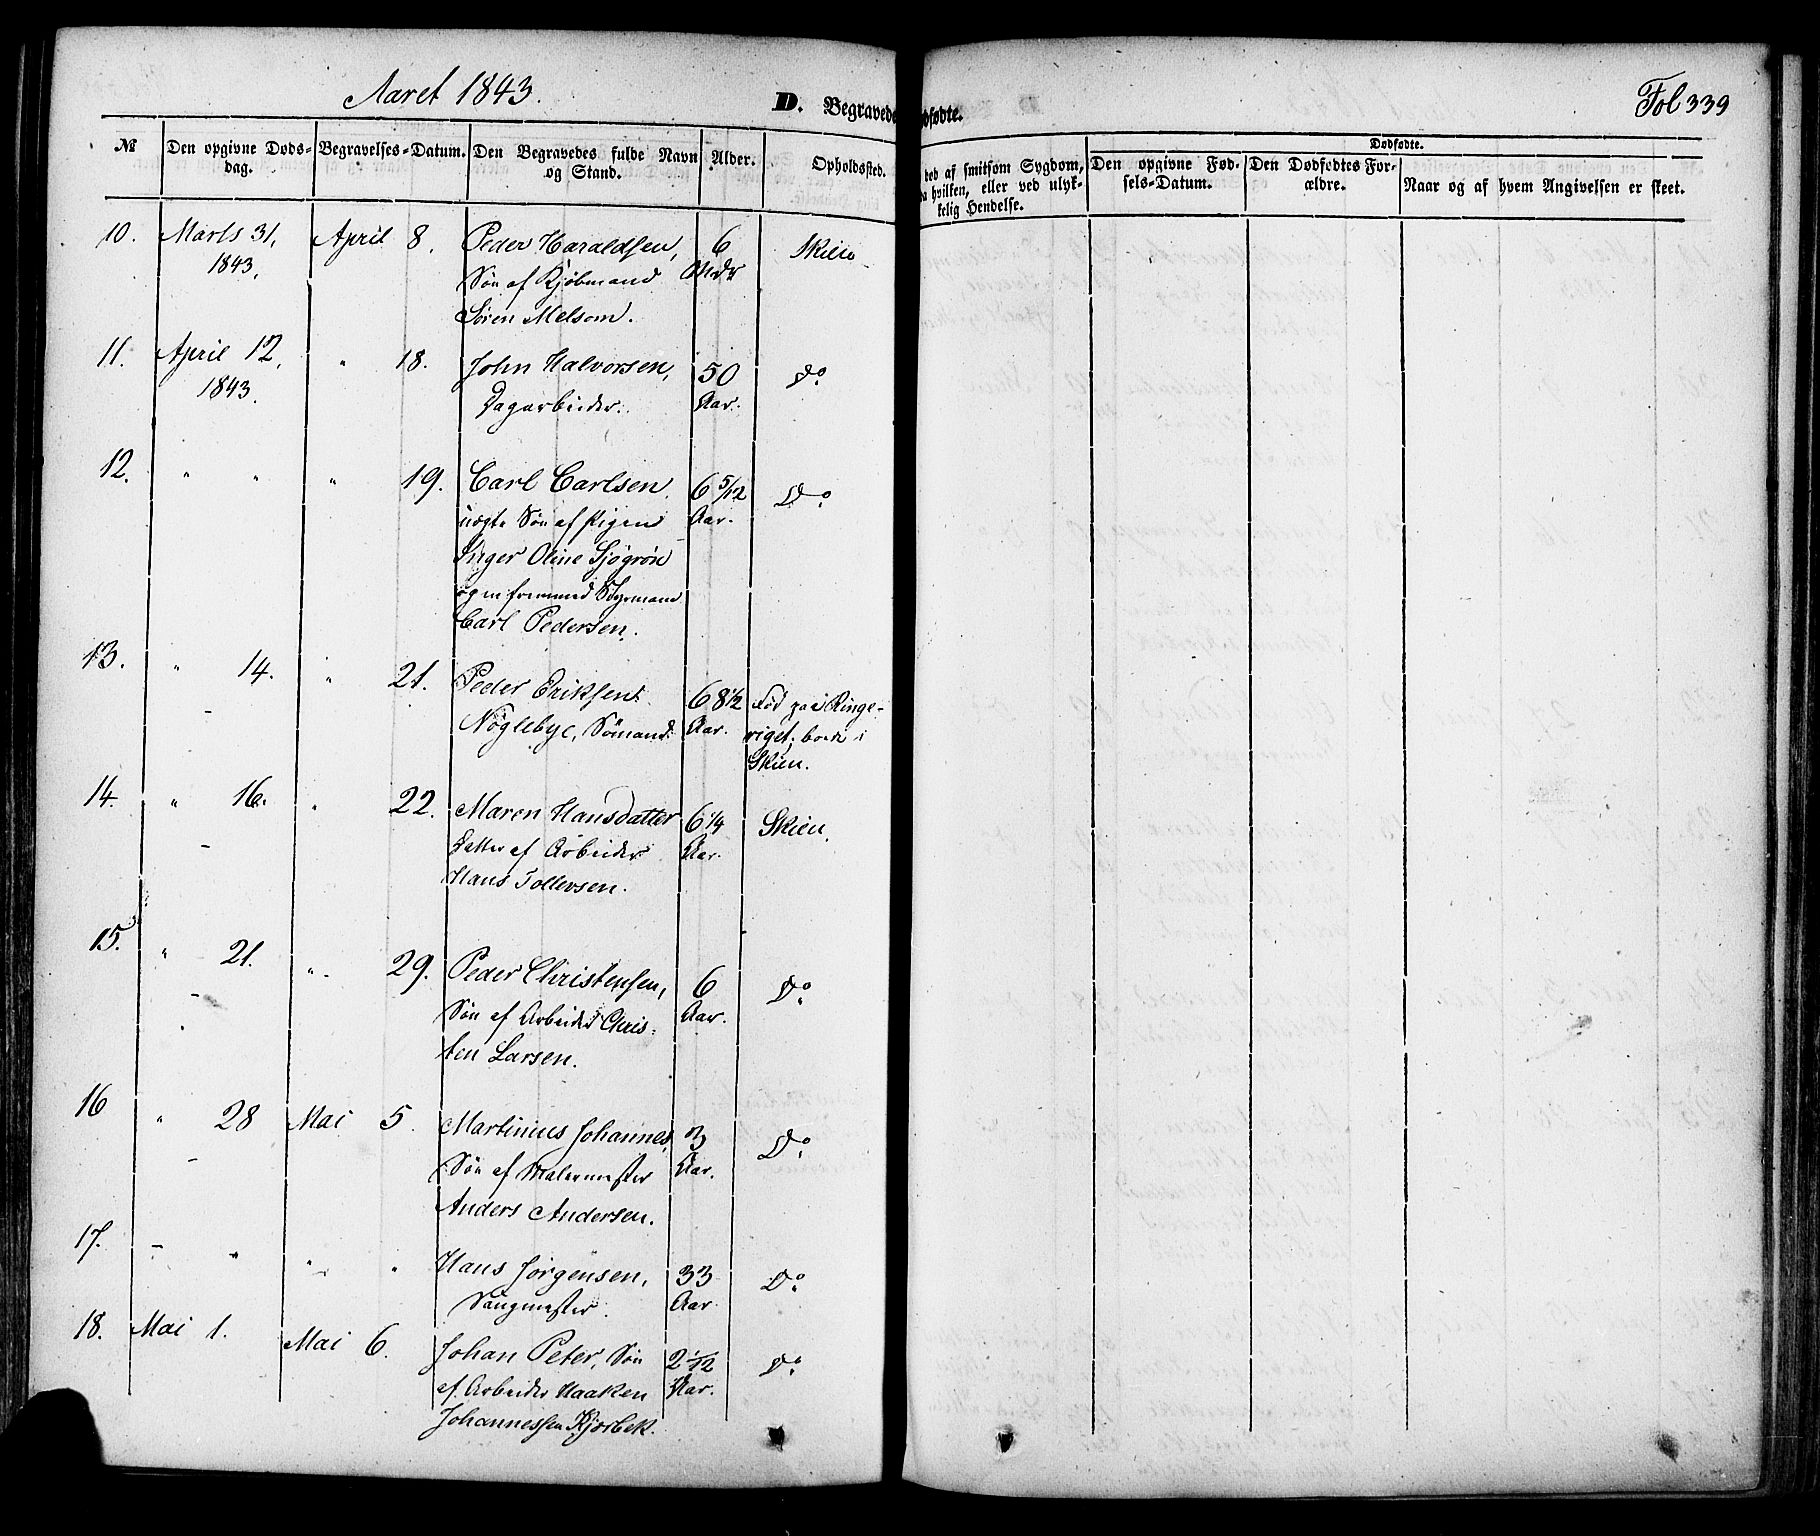 Aaret 1843.
D. Begravede
dfødte.
Fol 339
№
Den opgivne Døds-
dag.
Begravelses-Datum.
Den Begravedes fulde Navn
og Stand.
Alder.
Opholdssted.
ded af smitsom Sygdom,
hvilken, eller ved ulyk-
kelig Hendelse.
Dødfødte.
Den opgivne Fød-
sels-Datum.
Den Dødfødtes For-
ældre.
Naar og af hvem Angivelsen er skeet.
10. Marts 31, April 8. Peder Haraldsen, 6 Skien
1843, Søn af Kjøbmand Mdr
Søren Melsom.
11. April 12, " 18. John Halvorsen, 50 Do
1843. Dagarbeider. Aar.
12. " " " 19. Carl Carlsen 6 5/12 Do
uægte Søn af Pigen Aar.
Inger Oline Sjøgrön
og en fremmed Styrmand
Carl Pedersen.
13. " 14. " 21. Peder Eriksen 68 1/2 Fød paa Ringe-
Nöglebye, Sömand. Aar. riget, boede i
Skien.
14. " 16. " 22. Maren Hansdatter 6 1/4 Skien.
Datter af Arbeider Aar.
Hans Tollevsen.
15. " 21. " 29. Peder Christensen, 6 Do
Søn af Arbeider Chris- Aar.
ten Larsen.
16 " 28 Mai 5. Martinius Johannes, 3 Do
Søn af Malermester Aar.
Anders Andersen.
17. " " " " Hans Jörgensen, 33 Do
Saugmester. Aar
18. Mai 1. Mai 6. Johan Peter, Søn 2 1/12 Do
af Arbeider Haaken Aar.
Johannessen Kjørbek.